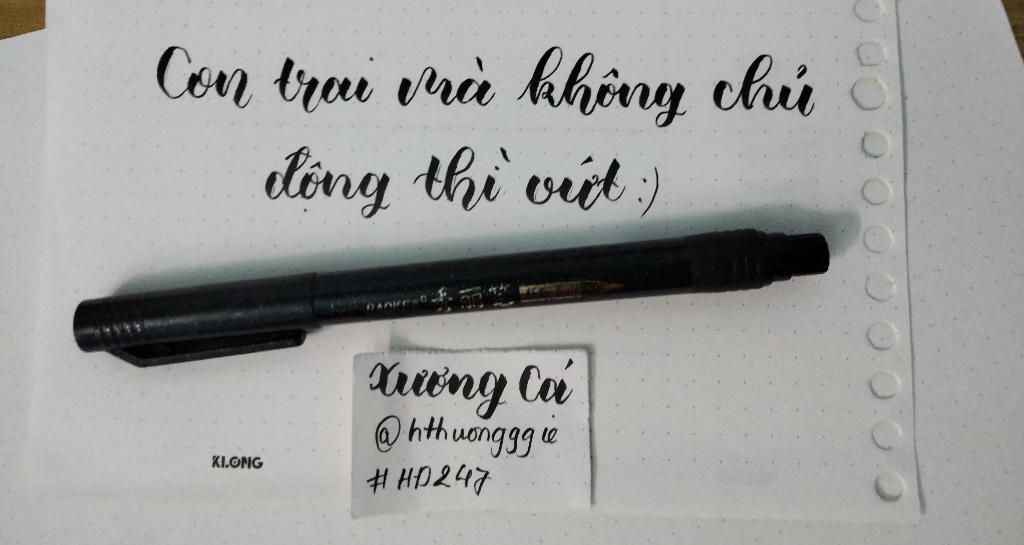 Con trai mà không chủ
đông thì vứt :)
BAOKE® 秀丽笔
Xương Cá
@hthuongggie
#HD247
KLONG